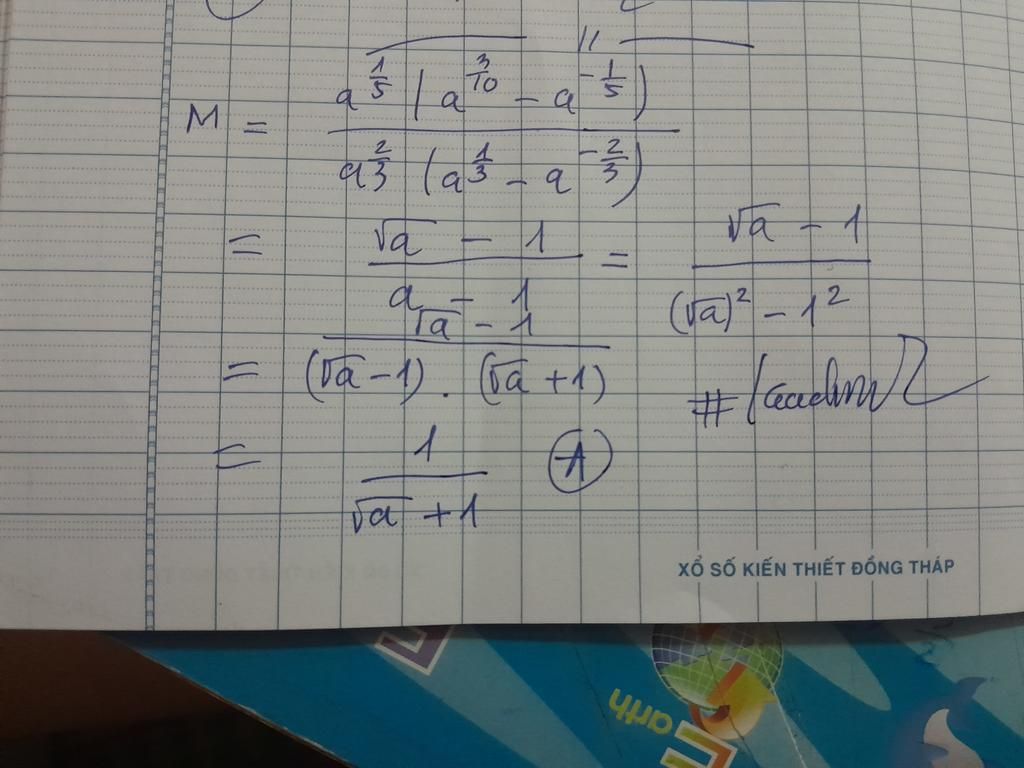 M = \frac{a^{\frac{1}{5}} (a^{\frac{3}{10}} - a^{-\frac{1}{5}})}{a^{\frac{2}{3}} (a^{\frac{1}{3}} - a^{-\frac{2}{3}})}
= \frac{\sqrt{a} - 1}{a - 1} = \frac{\sqrt{a} - 1}{(\sqrt{a})^2 - 1^2}
= \frac{\sqrt{a} - 1}{(\sqrt{a} - 1) . (\sqrt{a} + 1)}
= \frac{1}{\sqrt{a} + 1} A
XỔ SỐ KIẾN THIẾT ĐỒNG THÁP
Earth